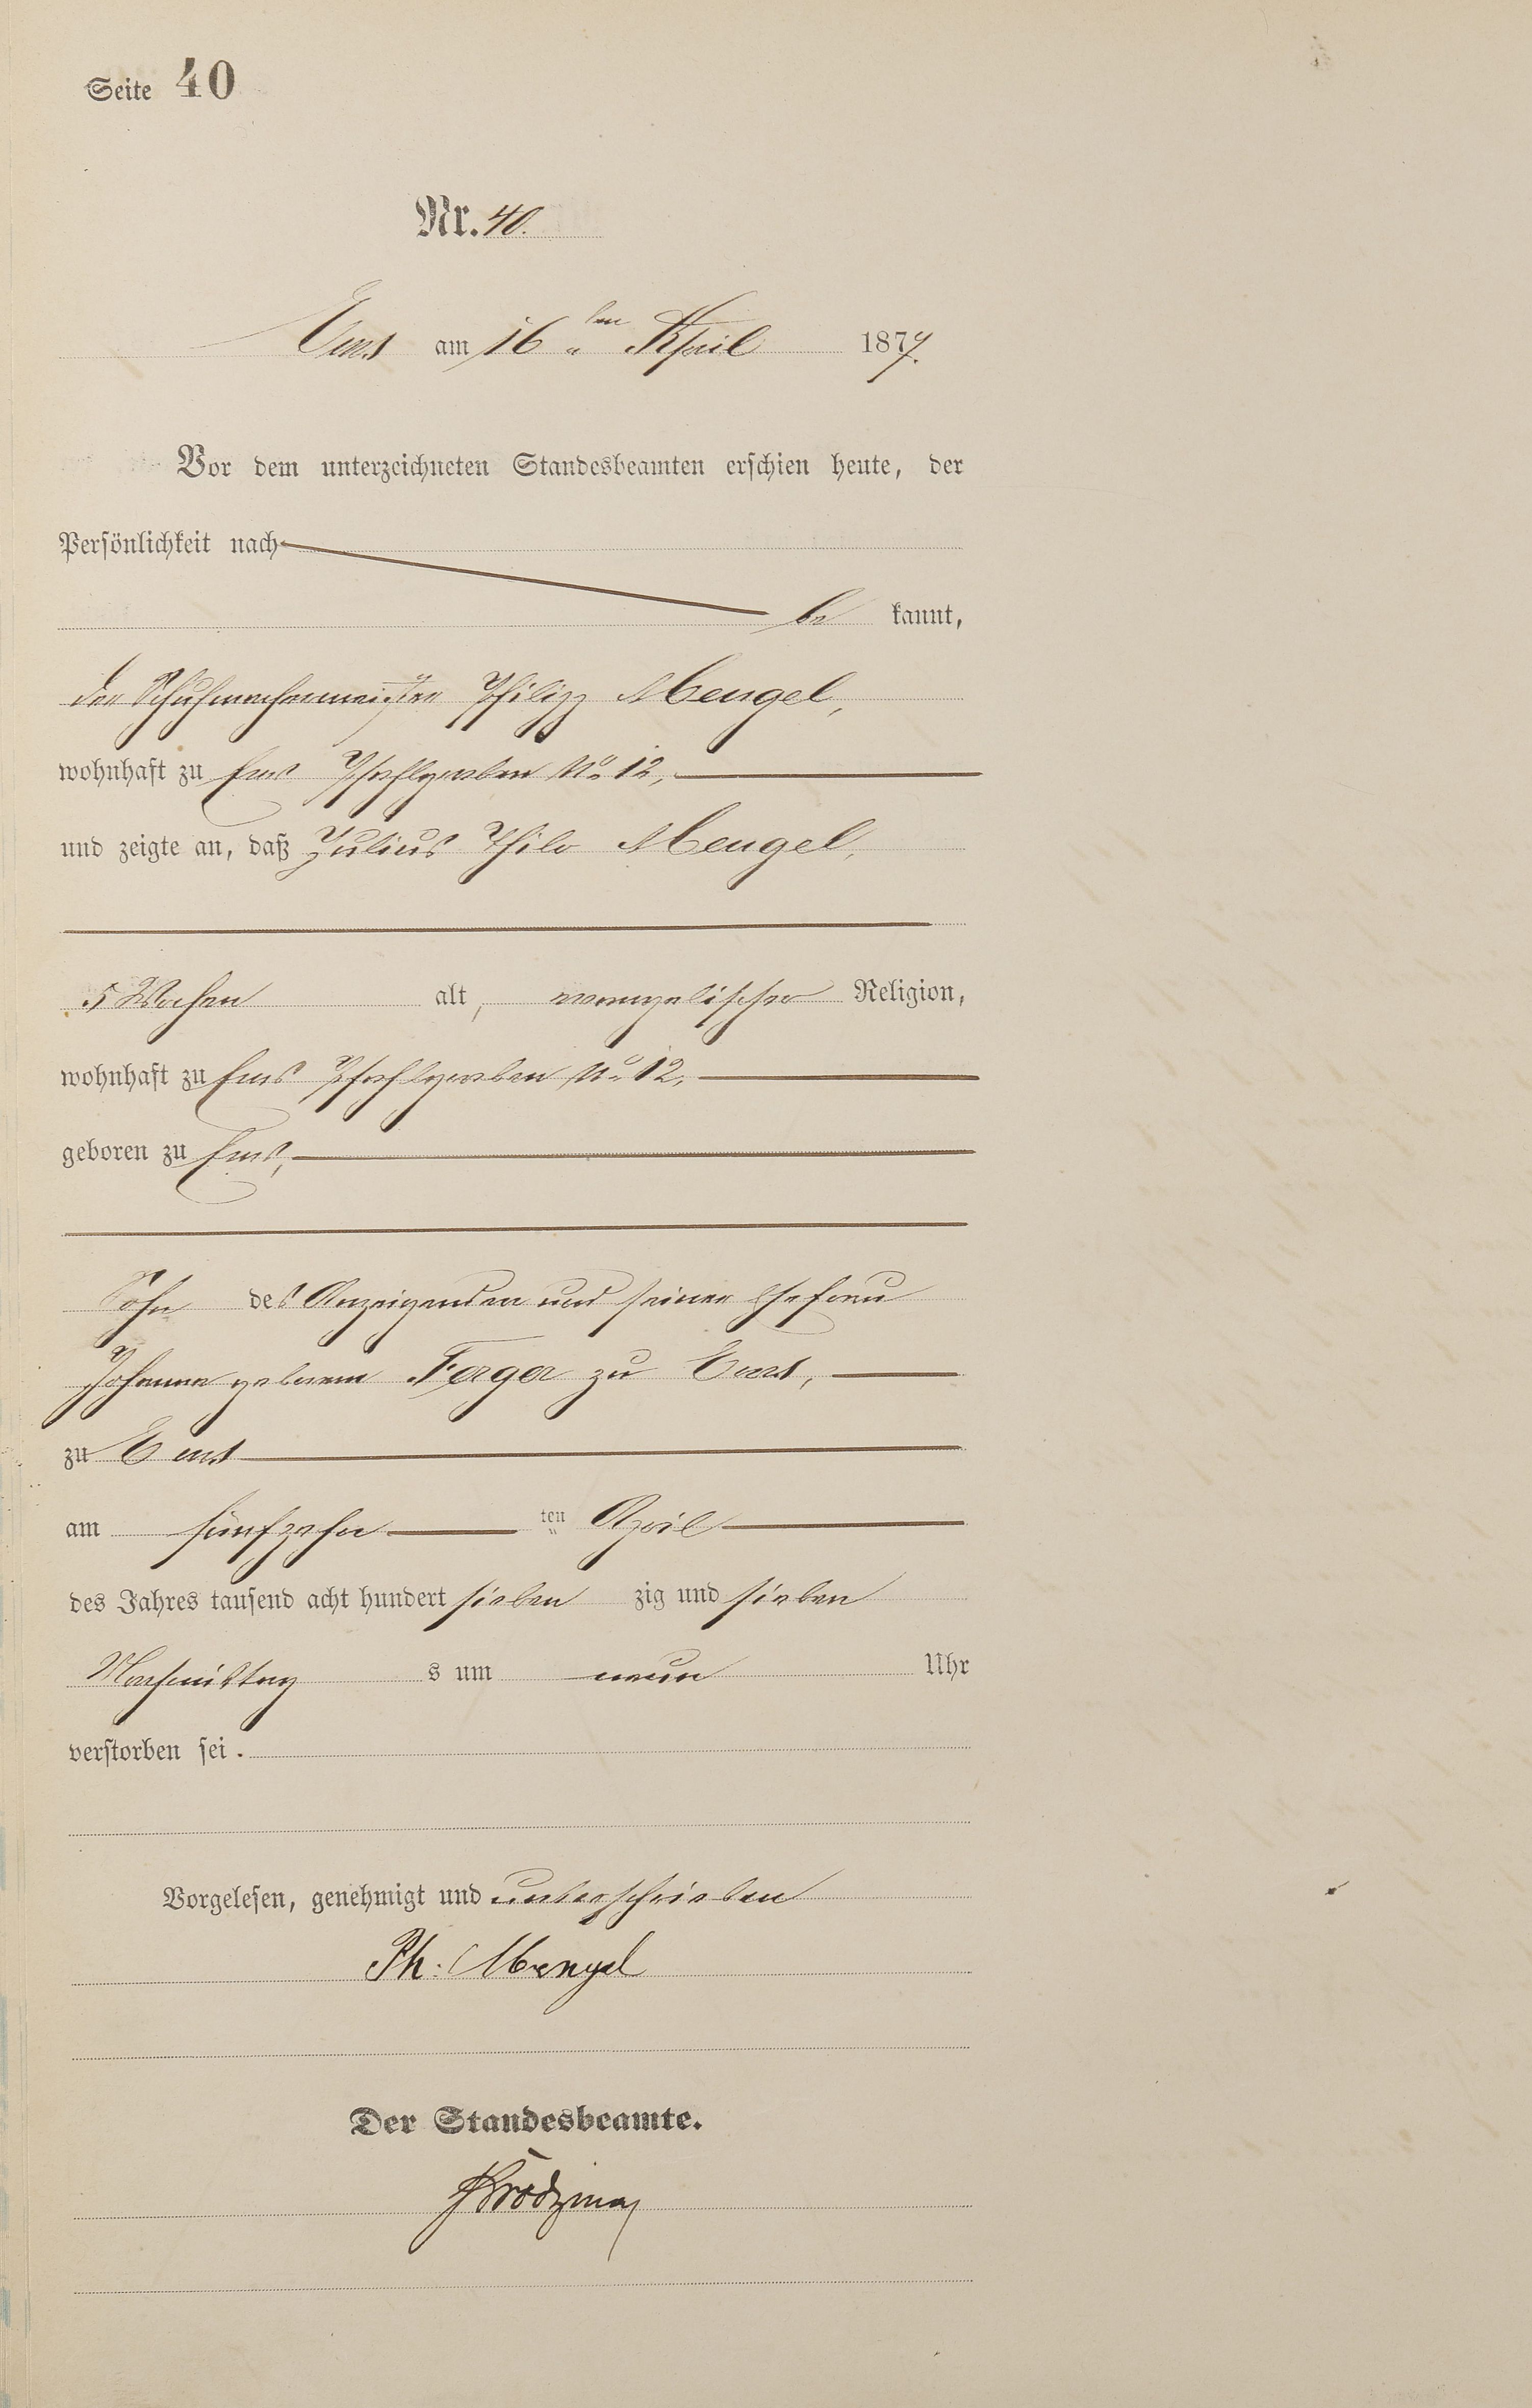 Seite 40
Nr. 40.
Ems am 16ten April 1877.
Vor dem unterzeichneten Standesbeamten erschien heute, der
Persönlichkeit nach
be kannt,
der Schuhmachermeister Philipp Mengel,
wohnhaft zu Ems Pfahlgraben No 12,
und zeigte an, daß Julius Thilo Mengel,
5 Wochen alt, evangelischer Religion,
wohnhaft zu Ems Pfahlgraben No 12,
geboren zu Ems,
Sohn des Anzeigenden und seiner Ehefrau
Johanna geborene Ferger zu Ems,
zu Ems
am fünfzehn ten April
des Jahres tausend acht hundert sieben zig und sieben
Nachmittag s um neun Uhr
verstorben sei.
Vorgelesen, genehmigt und unterschrieben
Ph. Mengel
Der Standesbeamte.